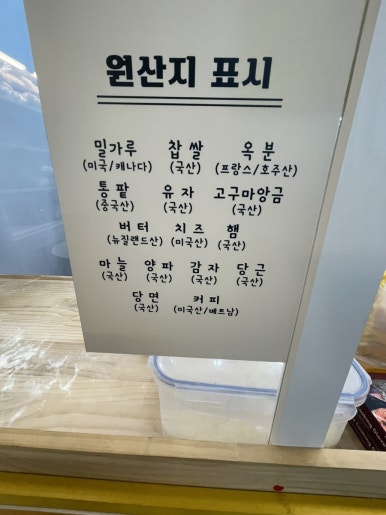 원산지 표시
밀가루 찹쌀 옥분
(미국/캐나다) (국산) (프랑스/호주산)
통팥 유자 고구마앙금
(중국산) (국산) (국산)
버터 치즈 햄
(뉴질랜드산) (미국산) (국산)
마늘 양파 감자 당근
(국산) (국산) (국산) (국산)
당면 커피
(국산) (미국산/베트남)